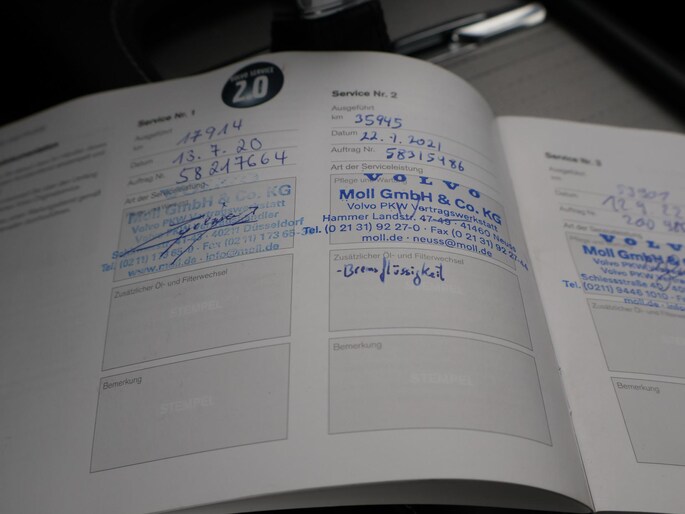 2.0
Service Nr. 1
Ausgeführt
km 17914
Datum 13.7.20
Auftrag Nr. 58217664
Art der Serviceleistung
Moll GmbH & Co. KG
Volvo PKW Vertragswerkstatt
40211 Düsseldorf
Tel. (0211) 173 6 · Fax (0211) 173 68
www.moll.de · info@moll.de
Zusätzlicher Öl- und Filterwechsel
STEMPEL
Bemerkung
STEMPEL
Service Nr. 2
Ausgeführt
km 35945
Datum 22.7.2021
Auftrag Nr. 58315486
Art der Serviceleistung
Pflege und Wartung
VOLVO
Moll GmbH & Co. KG
Volvo PKW Vertragswerkstatt
Hammer Landstr. 47-49 · 41460 Neuss
Tel. (0 21 31) 92 27-0 · Fax (0 21 31) 92 27-44
moll.de · neuss@moll.de
Zusätzlicher Öl- und Filterwechsel
-Bremsflüssigkeit
Bemerkung
STEMPEL
Service Nr. 3
Ausgeführt
km
Datum
Auftrag Nr.
Art der Serviceleistung
VOLVO
Moll GmbH &
Volvo PKW
Schiessstraße
Tel. (0211) 9446 1010 · Fax
moll.de · info
Zusätzlicher Öl- und
Bemerkung